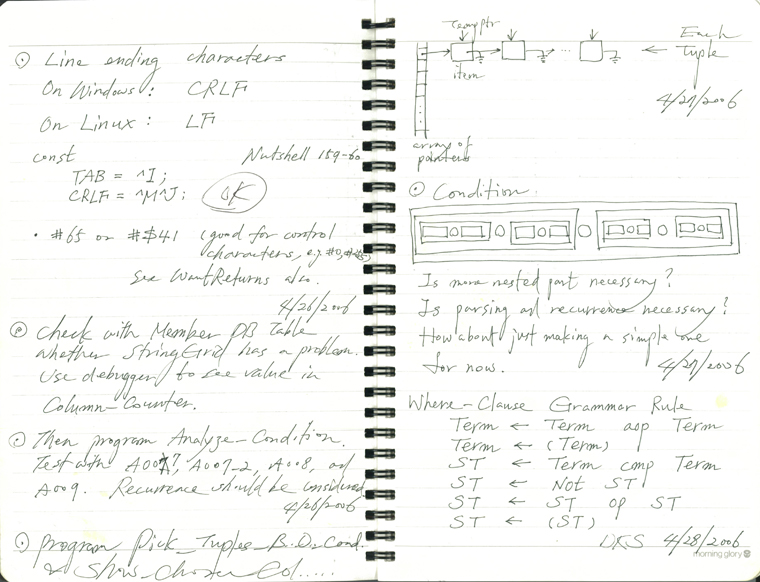 Line ending characters
On Windows : CRLF
On Linux : LF
const Nutshell 159-60
TAB = ^I;
CRLF = ^M^J; OK
• #65 or #$41 (good for control
characters, e.g. #0,
See WantReturns also.
4/26/2006
Check with Member DB Table
whether StringGrid has a problem.
Use debugger to see value in
Column-Counter.
Then program Analyze-Condition.
Test with A007, A007-2, A008, and
A009. Recurrence should be considered
4/26/2006
program Pick_Tuples_B.O.Cond.
& Show_Chosen_Col.....
Tempptr
item
...
← Each
Tuple
4/27/2006
array of
pointers
Condition.
Is more nested part necessary?
Is parsing and recurrence necessary?
How about just making a simple one
for now.
4/27/2006
Where-Clause Grammar Rule
Term ← Term aop Term
Term ← (Term)
ST ← Term cmp Term
ST ← Not ST
ST ← ST op ST
ST ← (ST)
DKS 4/28/2006
morning glory